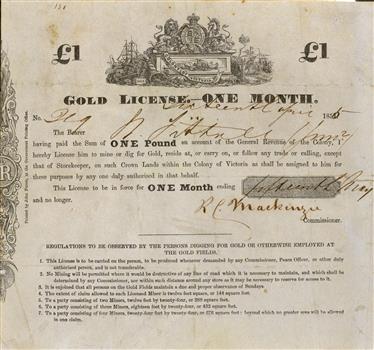 £1
£1
GOLD LICENSE.—ONE MONTH.
April 185
No.
The Bearer
having paid the Sum of ONE POUND on account of the General Revenue of the Colony, I
hereby License him to mine or dig for Gold, reside at, or carry on, or follow any trade or calling, except
that of Storekeeper, on such Crown Lands within the Colony of Victoria as shall be assigned to him for
these purposes by any one duly authorised in that behalf.
This License to be in force for ONE Month ending May
and no longer.
Commissioner.
REGULATIONS TO BE OBSERVED BY THE PERSONS DIGGING FOR GOLD OR OTHERWISE EMPLOYED AT
THE GOLD FIELDS.
1. This License is to be carried on the person, to be produced whenever demanded by any Commissioner, Peace Officer, or other duly
authorised person, and is not transferable.
2. No Mining will be permitted where it would be destructive of any line of road which it is necessary to maintain, and which shall be
determined by any Commissioner, nor within such distance around any store as it may be necessary to reserve for access to it.
3. It is enjoined that all persons on the Gold Fields maintain a due and proper observance of Sundays.
4. The extent of claim allowed to each Licensed Miner is twelve feet square, or 144 square feet.
5. To a party consisting of two Miners, twelve feet by twenty-four, or 288 square feet.
6. To a party consisting of three Miners, eighteen feet by twenty-four, or 432 square feet.
7. To a party consisting of four Miners, twenty-four feet by twenty-four, or 576 square feet; beyond which no greater area will be allowed
in one claim.